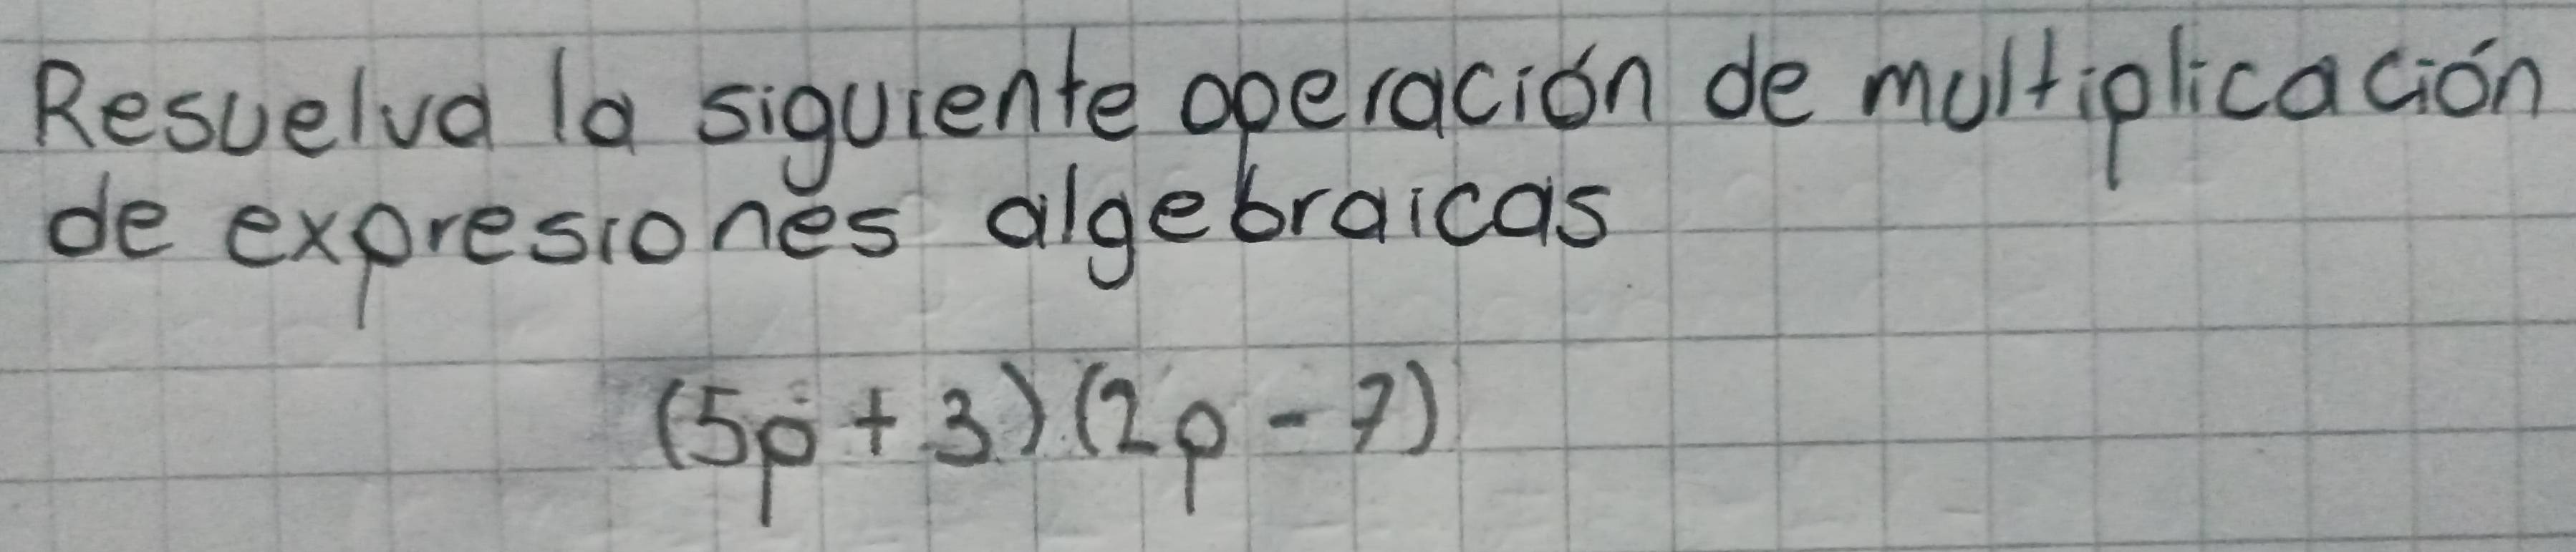 Resuelva la siguiente operación de multiplicación
de expresiones algebraicas
(5p + 3) (2p - 7)